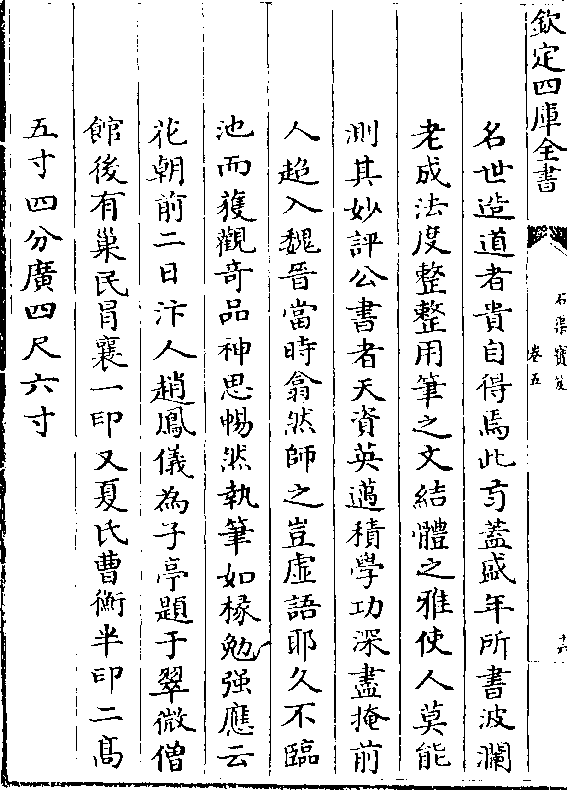 欽定四庫全書
石渠寶笈
卷五
名世造道者貴自得焉此方蓋盛年所書波瀾
老成法度整整用筆之文結體之雅使人莫能
測其妙評公書者天資英邁積學功深盡掩前
人趨入魏晉當時翕然師之豈虛語耶久不臨
池而獲觀奇品神思暢然執筆如椽勉强應云
花朝前二日汴人趙鳳儀為子亭題于翠微僧
館後有巢民冐襄一印又夏氏曹衡半印二髙
五寸四分廣四尺六寸